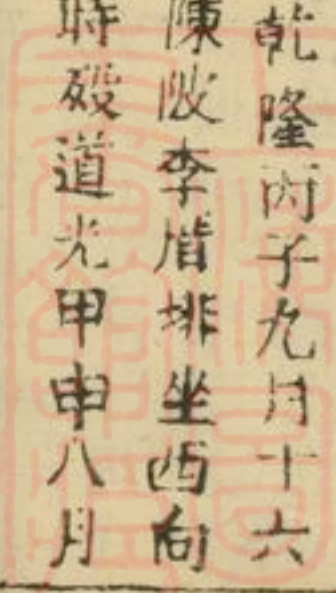 乾隆丙子九月十六
陳陂李㫺排坐酉向
時殁道光甲申八月